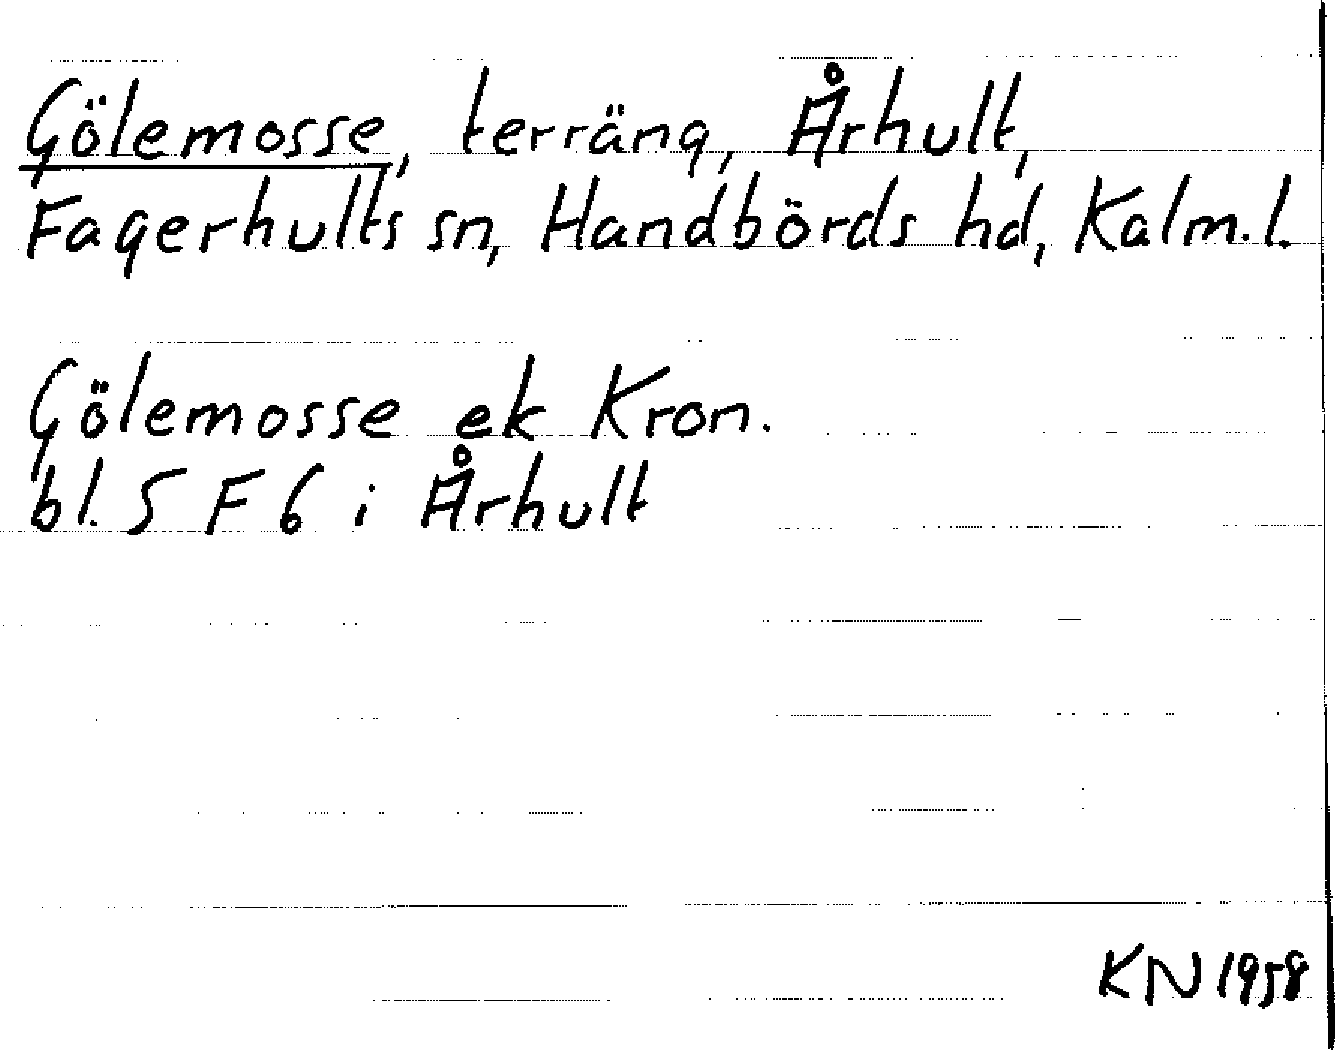 Gölemosse, terräng, Århult,
Fagerhults sn, Handbörds hd, Kalm.l.
Gölemosse ek Kron.
bl. 5 F 6 i Århult
KN 1958